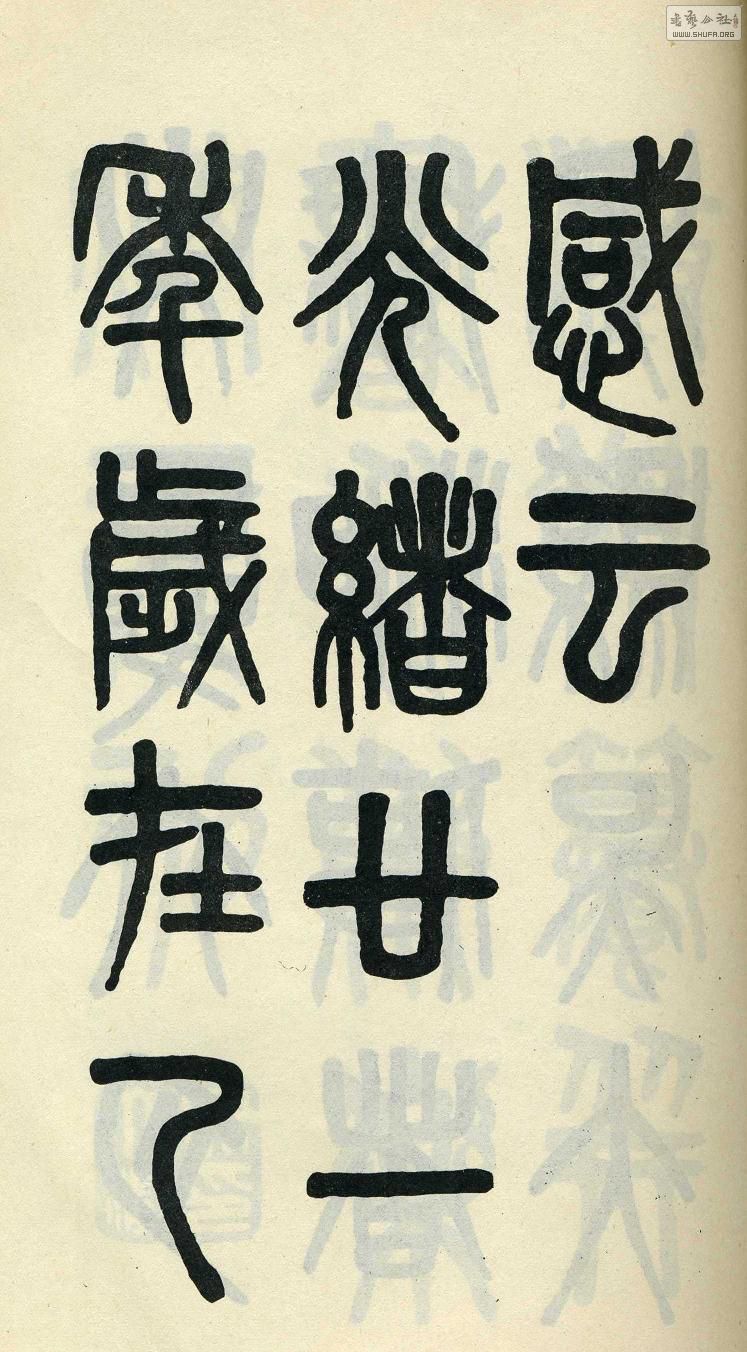 感云
光緒廿一
年歲在乙
書藝公社
WWW.SHUFA.ORG